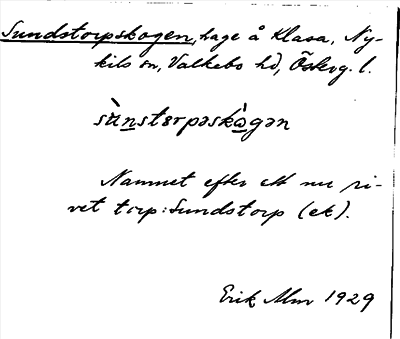 Sundstorpskogen, hage å Klasa, Ny-
kils sn, Valkebo hd, Östergl.
sùnstɔrpəskògən
Namnet efter ett nu ri-
vet torp: Sundstorp (ek).
Erik Alm 1929